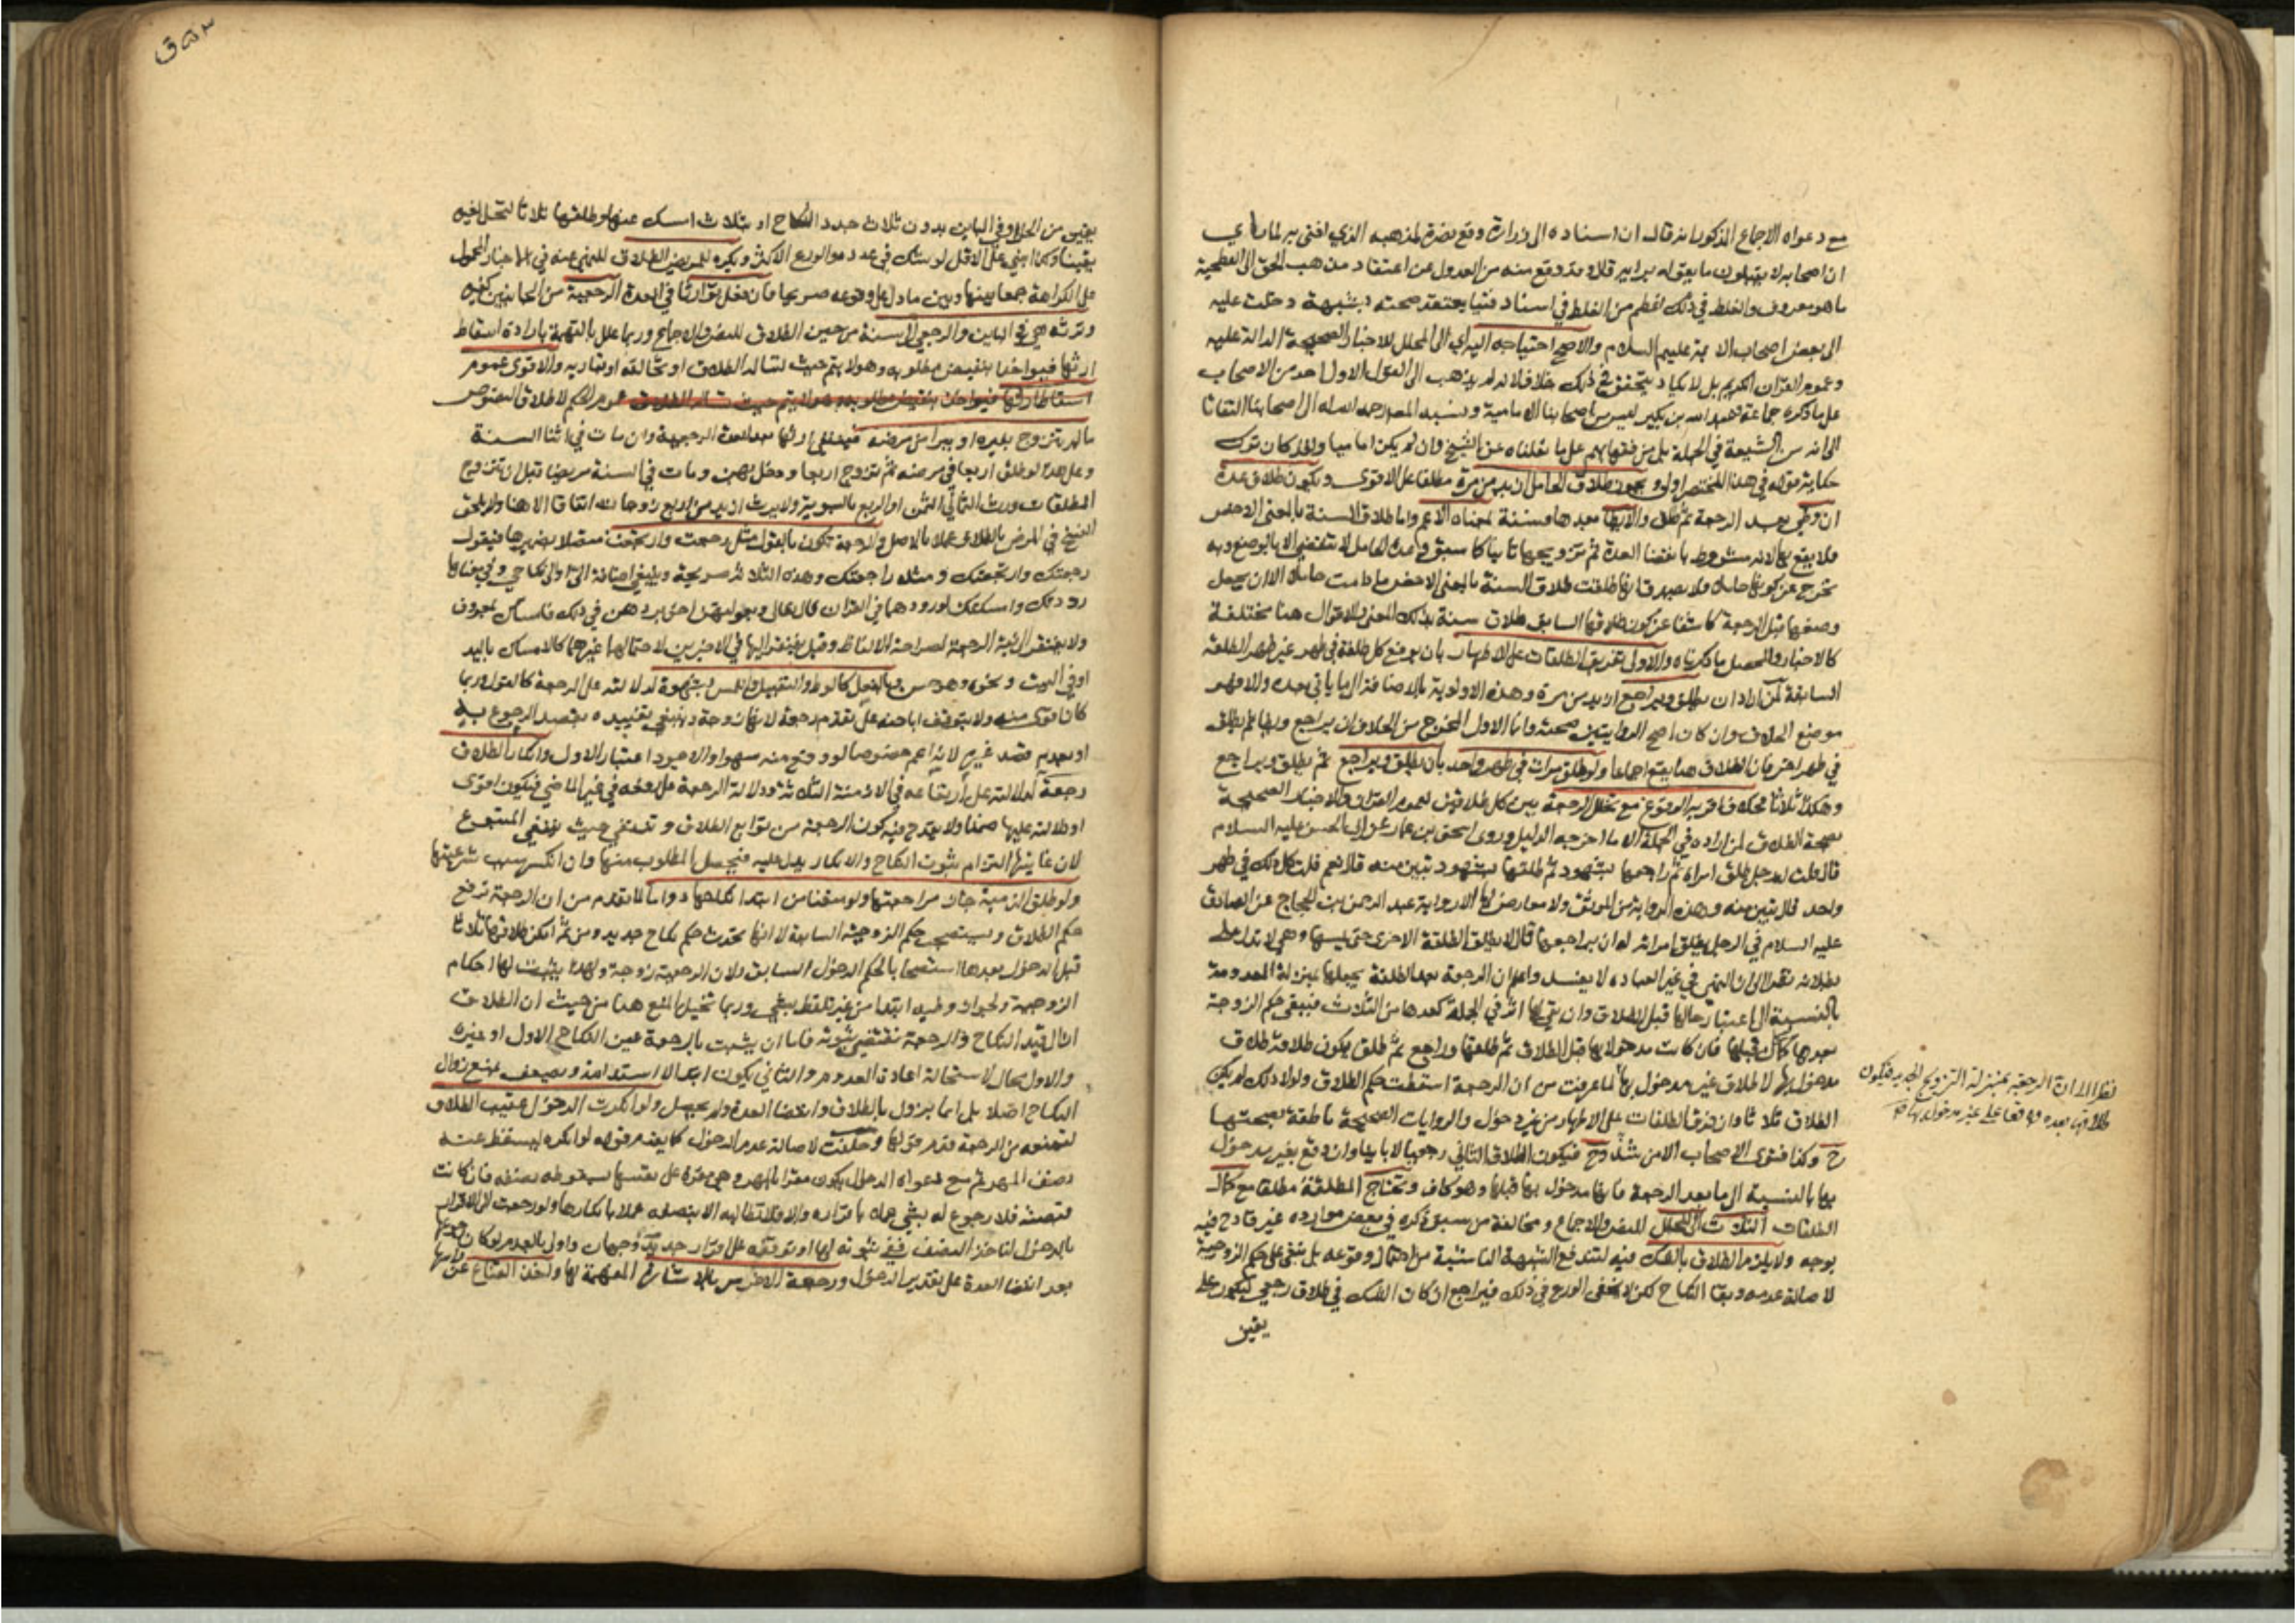 مع دعواه الاجماع المذكور بانه قال ان اسناده الى زرارة وقع نصرة لمذهبه الذي افتى به لما راى
ان اصحابه لا يقبلون ما يقوله برايه قال وقد وقع منه من العدول عن اعتقاد مذهب الحق الى الفطحية
ما هو معروف والغلط في ذلك اعظم من الغلط في اسناد فتيا يعتقد صحته بشبهة دخلت عليه
الى بعض اصحاب الائمة عليهم السلام والاصح احتياجه اليه اي الى المحلل للاخبار الصحيحة الدالة عليه
وعموم القران الكريم بل لا يكاد يتحقق في ذلك خلاف لانه لم يذهب الى القول الاول احد من الاصحاب
على ما ذكره جماعة وعبد الله بن بكير ليس من اصحابنا الامامية ونسبه المص رحمه الله الى اصحابنا التفاتا
الى انه من الشيعة في الجملة بل من فقهائهم على ما نقلناه عن الشيخ وان لم يكن اماميا ولقد كان ترك
حكاية قوله في هذا المختصر اولى ويجوز طلاق الحامل ازيد من مرة مطلقا على الاقوى ويكون طلاق عدة
ان وطي بعد الرجعة ثم طلق والا يطا بعدها فسنة بمعناه الاعم واما طلاق السنة بالمعنى الاخص
فلا يقع بها لانه مشروط بانقضا العدة ثم تزويجها ثانيا كما سبق وعدة الحامل لا تنقضي الا بالوضع وبه
تخرج عن كونها حاملا فلا يصدق انها طلقت طلاق السنة بالمعنى الاخص ما دامت حاملا الا ان يجعل
وضعها قبل الرجعة كاشفا عن كون طلاقها السابق طلاق سنة بذلك المعنى والاقوال هنا مختلفة
كالاخبار والمحصل ما ذكرناه والاولى تفريق الطلقات على الاطهار بان يوقع كل طلقة في طهر غير طهر الطلقة
السابقة لمن اراد ان يطلق ويراجع ازيد من مرة وهذه الاولوية بالاضافة الى ما ياتي بعده والا فهو
موضع الخلاف وان كان اصح الروايتين صحته وانما الاولى المخرج من الخلاف ان يراجع ويطا ثم يطلق
في طهر اخر فان الطلاق هنا يقع اجماعا ولو طلق مرات في طهر واحد بان يطلق ويراجع ثم يطلق ويراجع
وهكذا ثلاثا فخلاف اقربه الوقوع مع تخلل الرجعة بين كل طلاقين لعموم القران والاخبار الصحيحة
بصحة الطلاق لمن اراده في الجملة الا ما اخرجه الدليل وروى اسحق بن عمار عن ابي الحسن عليه السلام
قال قلت له رجل طلق امراة ثم راجعها بشهود ثم طلقها بشهود تبين منه قال نعم قلت كل ذلك في طهر
واحد قال تبين منه وهذه الرواية من الموثق ولا معارض لها الا رواية عبد الرحمن بن الحجاج عن الصادق
عليه السلام في الرجل يطلق امراته له ان يراجعها قال لا يطلق الطلقة الاخرى حتى يمسها وهي لا تدل على
بطلانه نظرا الى ان النهى في غير العبادة لا يفسد واعلم ان الرجعة بعد الطلقة يجعلها بمنزلة المعدومة
بالنسبة الى اعتبار حالها قبل الطلاق وان بقي لها اثر في الجملة كعدها من الثلاث فيبقى حكم الزوجة
بعدها كما كان قبلها فان كانت مدخولا بها قبل الطلاق ثم طلقها وراجع ثم طلق يكون طلاقه طلاق
مدخول بها لا طلاق غير مدخول بها لما عرفت من ان الرجعة اسقطت حكم الطلاق ولولا ذلك لم يكن
الطلاق ثلاثا وان فرق الطلقات على الاطهار من غير دخول والروايات الصحيحة ناطقة بصحتها
ح وكذا فتوى الاصحاب الا من شذ وح فيكون الطلاق الثاني رجعيا لا باينا وان وقع بغير مدخول
بها بالنسبة الى ما بعد الرجعة فانها مدخول بها قبلها وهو كاف وتحتاج المطلقة مطلقا مع كمال
الطلقات الثلاث الى المحلل للنص والاجماع ومخالفة من سبق ذكره في بعض موارده غير قادح فيه
بوجه ولا يلزم الطلاق بالشك فيه لتندفع الشبهة الناشئة من احتمال وقوعه بل تبقى على حكم الزوجية
لاصالة عدمه وبقا النكاح لكن لا يخفى الورع في ذلك فيراجع ان كان الشك في طلاق رجعي ليكون على
يقين
نظرا الى ان الرجعة بمنزلة التزويج الجديد فيكون
طلاقها بعده واقعا على غير مدخول بها صح
يقين من الحل وفي الباين بدون ثلاث جدد النكاح او بثلاث امسك عنها وطلقها ثلاثا لتحل لغيره
يقينا وكذا يبني على الاقل لو شك في عدده والورع الاكثر ويكره للمريض الطلاق للنهي عنه في الاخبار المحمول
على الكراهة جمعا بينها وبين ما دل على وقوعه صريحا فان فعل توارثا في العدة الرجعية من الجانبين كغيره
وترثه هي في الباين والرجعي الى سنة من حين الطلاق للنص والاجماع وربما علل بالتهمة بارادة اسقاط
ارثها فيواخذ بنقيض مطلوبه وهو لا يتم حيث تساله الطلاق او تخالعه او تباريه والاقوى عموم
اسقاط ارثها فيواخذ بنقيض مطلوبه وهو لا يتم حيث تساله الطلاق عموم الحكم لاطلاق النصوص
ما لم تتزوج بغيره او يبرا من مرضه فينتفي ارثها بعد العدة الرجعية وان مات في اثنا السنة
وعلى هذا لو طلق اربعا في مرضه ثم تزوج اربعا ودخل بهن ومات في السنة مريضا قبل ان تتزوج
المطلقات ورث الثماني الثمن او الربع بالسوية ولا يرث ازيد من اربع زوجات اتفاقا الا هنا ولا يلحق
الفسخ في المرض بالطلاق عملا بالاصل والرجعة تكون بالقول مثل رجعت وارتجعت متصلا بضميرها فيقول
رجعتك وارتجعتك ومثله راجعتك وهذه الثلاثة صريحة وينبغي اضافة الي او الى نكاحي وفي معناها
رددتك وامسكتك لورودهما في القران قال تعالى وبعولتهن احق بردهن في ذلك فامساك بمعروف
ولا يفتقر الى نية الرجعة لصراحة الالفاظ وقيل يفتقر اليها في الاخيرين لاحتمالها غيرهما كالامساك باليد
او في البيت ونحوه وهو حسن وبالفعل كالوطي والتقبيل واللمس بشهوة لدلالته على الرجعة كالقول وربما
كان اقوى منه ولا يتوقف اباحته على تقدم رجعة لانها زوجة وينبغي تقييده بقصد الرجوع به
او بعدم قصد غيره لانه اعم خصوصا لو وقع منه سهوا والاجود اعتبار الاول وانكار الطلاق
رجعة لدلالته على ارتفاعه في الازمنة الثلاثة ودلالة الرجعة على رفعه في غير الماضي فيكون اقوى
او دلالته عليها ضمنا ولا يقدح فيه كون الرجعة من توابع الطلاق وتنتفي حيث ينتفي المتبوع
لان غايتها التزام ثبوت النكاح والانكار يدل عليه فيحصل المطلوب منها وان انكر سبب شرعيتها
ولو طلق الذمية جاز مراجعتها ولو منعنا من ابتدا نكاحها دواما لما تقدم من ان الرجعة ترفع
حكم الطلاق ويستصحب حكم الزوجية السابقة لا انها تحدث حكم نكاح جديد ومن ثم امكن طلاقها ثلاثا
قبل الدخول بعدها استصحابا لحكم الدخول السابق ولان الرجعية زوجة ولهذا يثبت لها احكام
الزوجية ولجواز وطيه ابتدا من غير تلفظ بشي وربما تخيل المنع هنا من حيث ان الطلاق
ازال قيد النكاح والرجعة تقتضي ثبوته فاما ان يثبت بالرجعة عين النكاح الاول او غيره
والاول محال لاستحالة اعادة المعدوم والثاني يكون ابتدا لا استدامة ويضعف بمنع زوال
النكاح اصلا بل انما يزول بالطلاق وانقضا العدة ولم يحصل ولو انكرت الدخول عقيب الطلاق
لتمنعه من الرجعة قدم قولها وحلفت لاصالة عدم الدخول كما يقدم قوله لو انكره ليسقط عنه
نصف المهر ثم مع دعواه الدخول يكون مقرا بالمهر وهي مقرة على نفسها بسقوط نصفه فان كانت
قبضته فلا رجوع له بشي عملا باقراره والا فلا تطالبه الا بنصفه عملا بانكارها ولو رجعت الى الاقرار
بالدخول لتاخذ النصف ففي ثبوته لها او توقفه على اقرار جديد وجهان واولى بالعدم لو كان رجوعها
بعد انقضا العدة على تقدير الدخول ورجعة الاخرس بالاشارة المفهمة لها واخذ القناع عن راسها